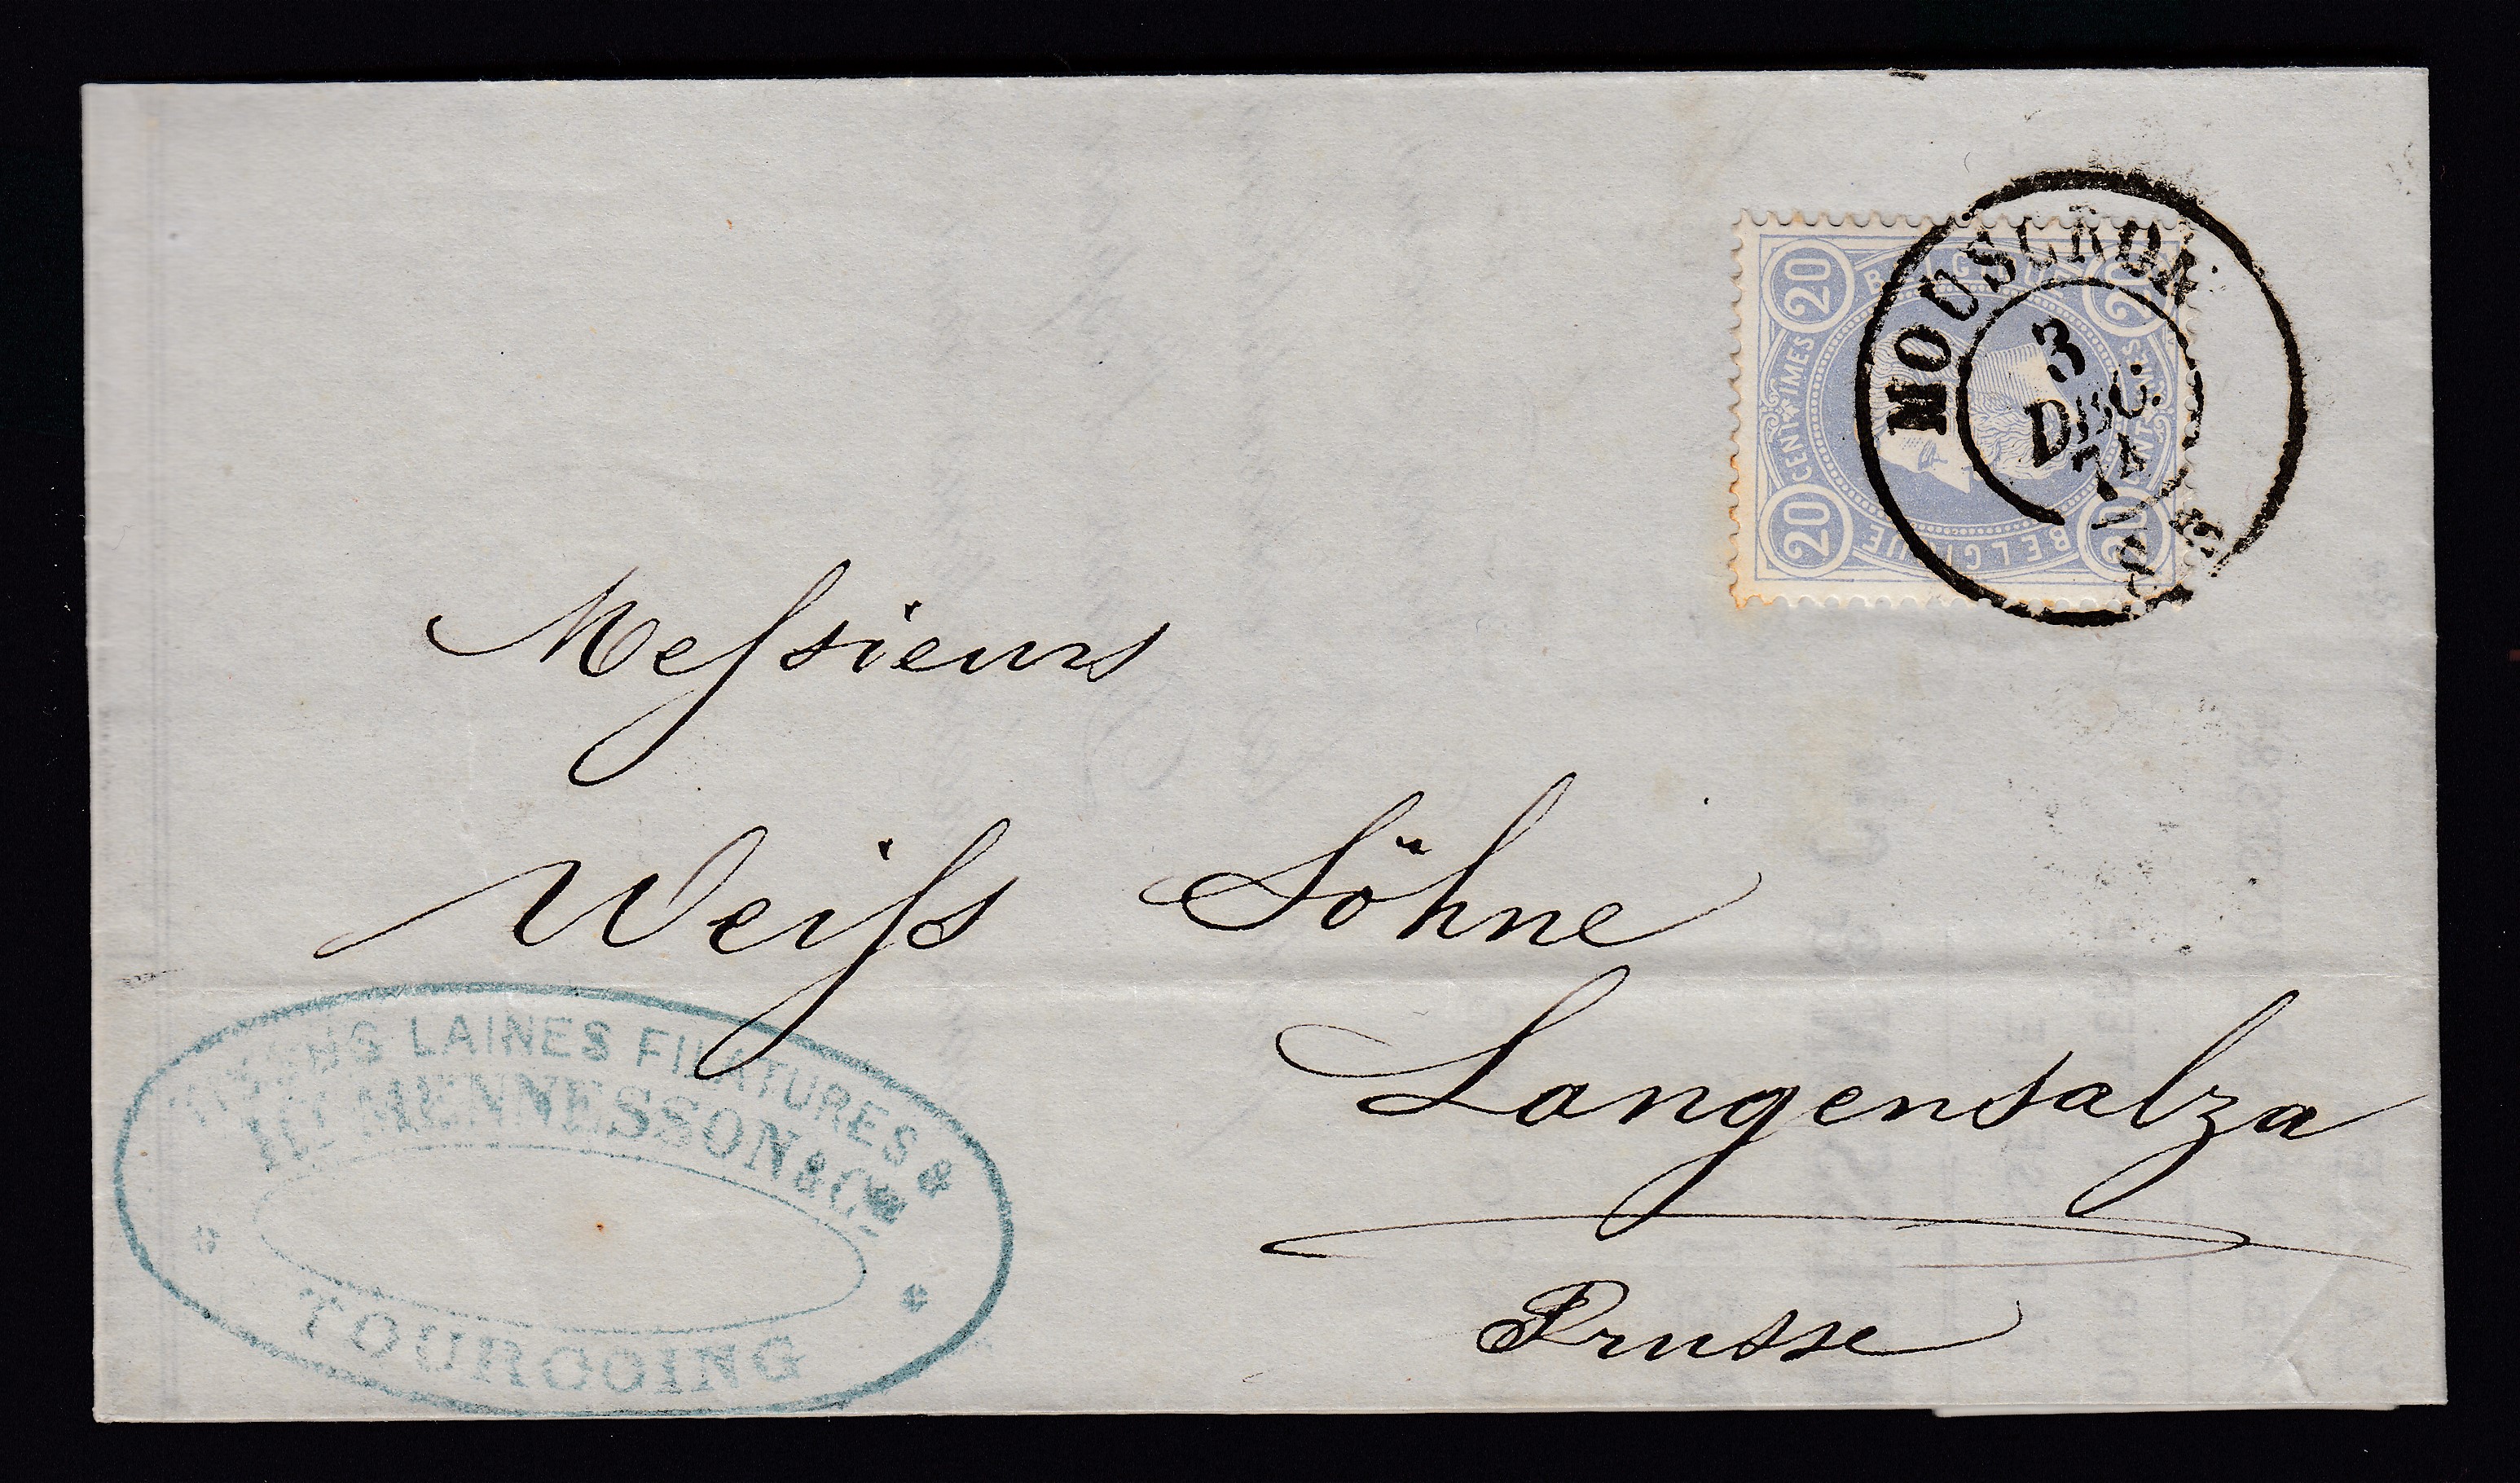 20
BELGIQUE
20
CENTIMES
CENTIMES
20
BELGIQUE
20
MOUSCRON
3
DEC.
Meſsieurs
Weiſs Söhne
Langensalza
Prusse
LAINES FILATURES &
MENNESSON & Cie
TOURCOING